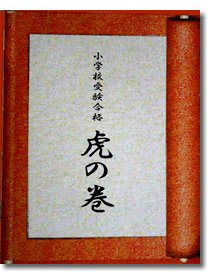 小学校受験合格
虎の巻